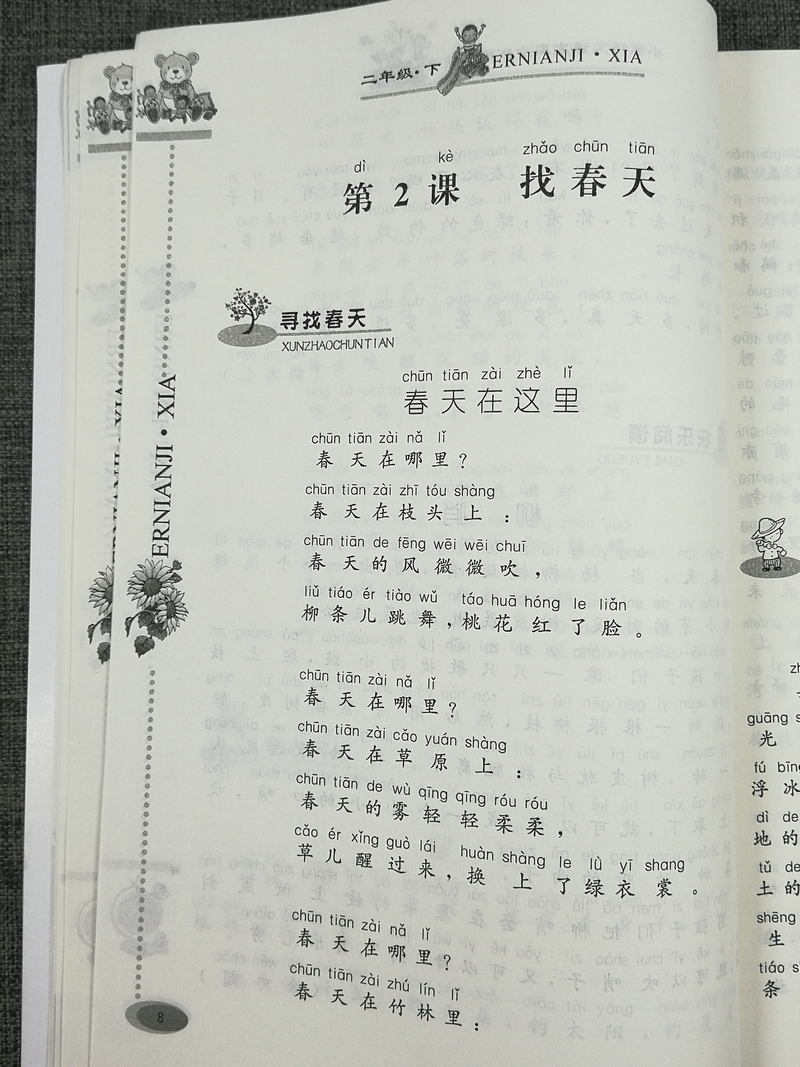 二年级·下 ERNIANJI·XIA
dì kè zhǎo chūn tiān
第2课 找春天
寻找春天
XUNZHAOCHUNTIAN
chūn tiān zài zhè lǐ
春天在这里
chūn tiān zài nǎ lǐ
春天在哪里？
chūn tiān zài zhī tóu shàng
春天在枝头上：
chūn tiān de fēng wēi wēi chuī
春天的风微微吹，
liǔ tiáo ér tiào wǔ táo huā hóng le liǎn
柳条儿跳舞，桃花红了脸。
chūn tiān zài nǎ lǐ
春天在哪里？
chūn tiān zài cǎo yuán shàng
春天在草原上：
chūn tiān de wù qīng qīng róu róu
春天的雾轻轻柔柔，
cǎo ér xǐng guò lái huàn shàng le lǜ yī shang
草儿醒过来，换上了绿衣裳。
chūn tiān zài nǎ lǐ
春天在哪里？
chūn tiān zài zhú lín lǐ
春天在竹林里：
8
ERNIANJI·XIA
guāng
光
fú bīng
浮冰
dì de
地的
tǔ de
土的
shēng
生
tiáo
条